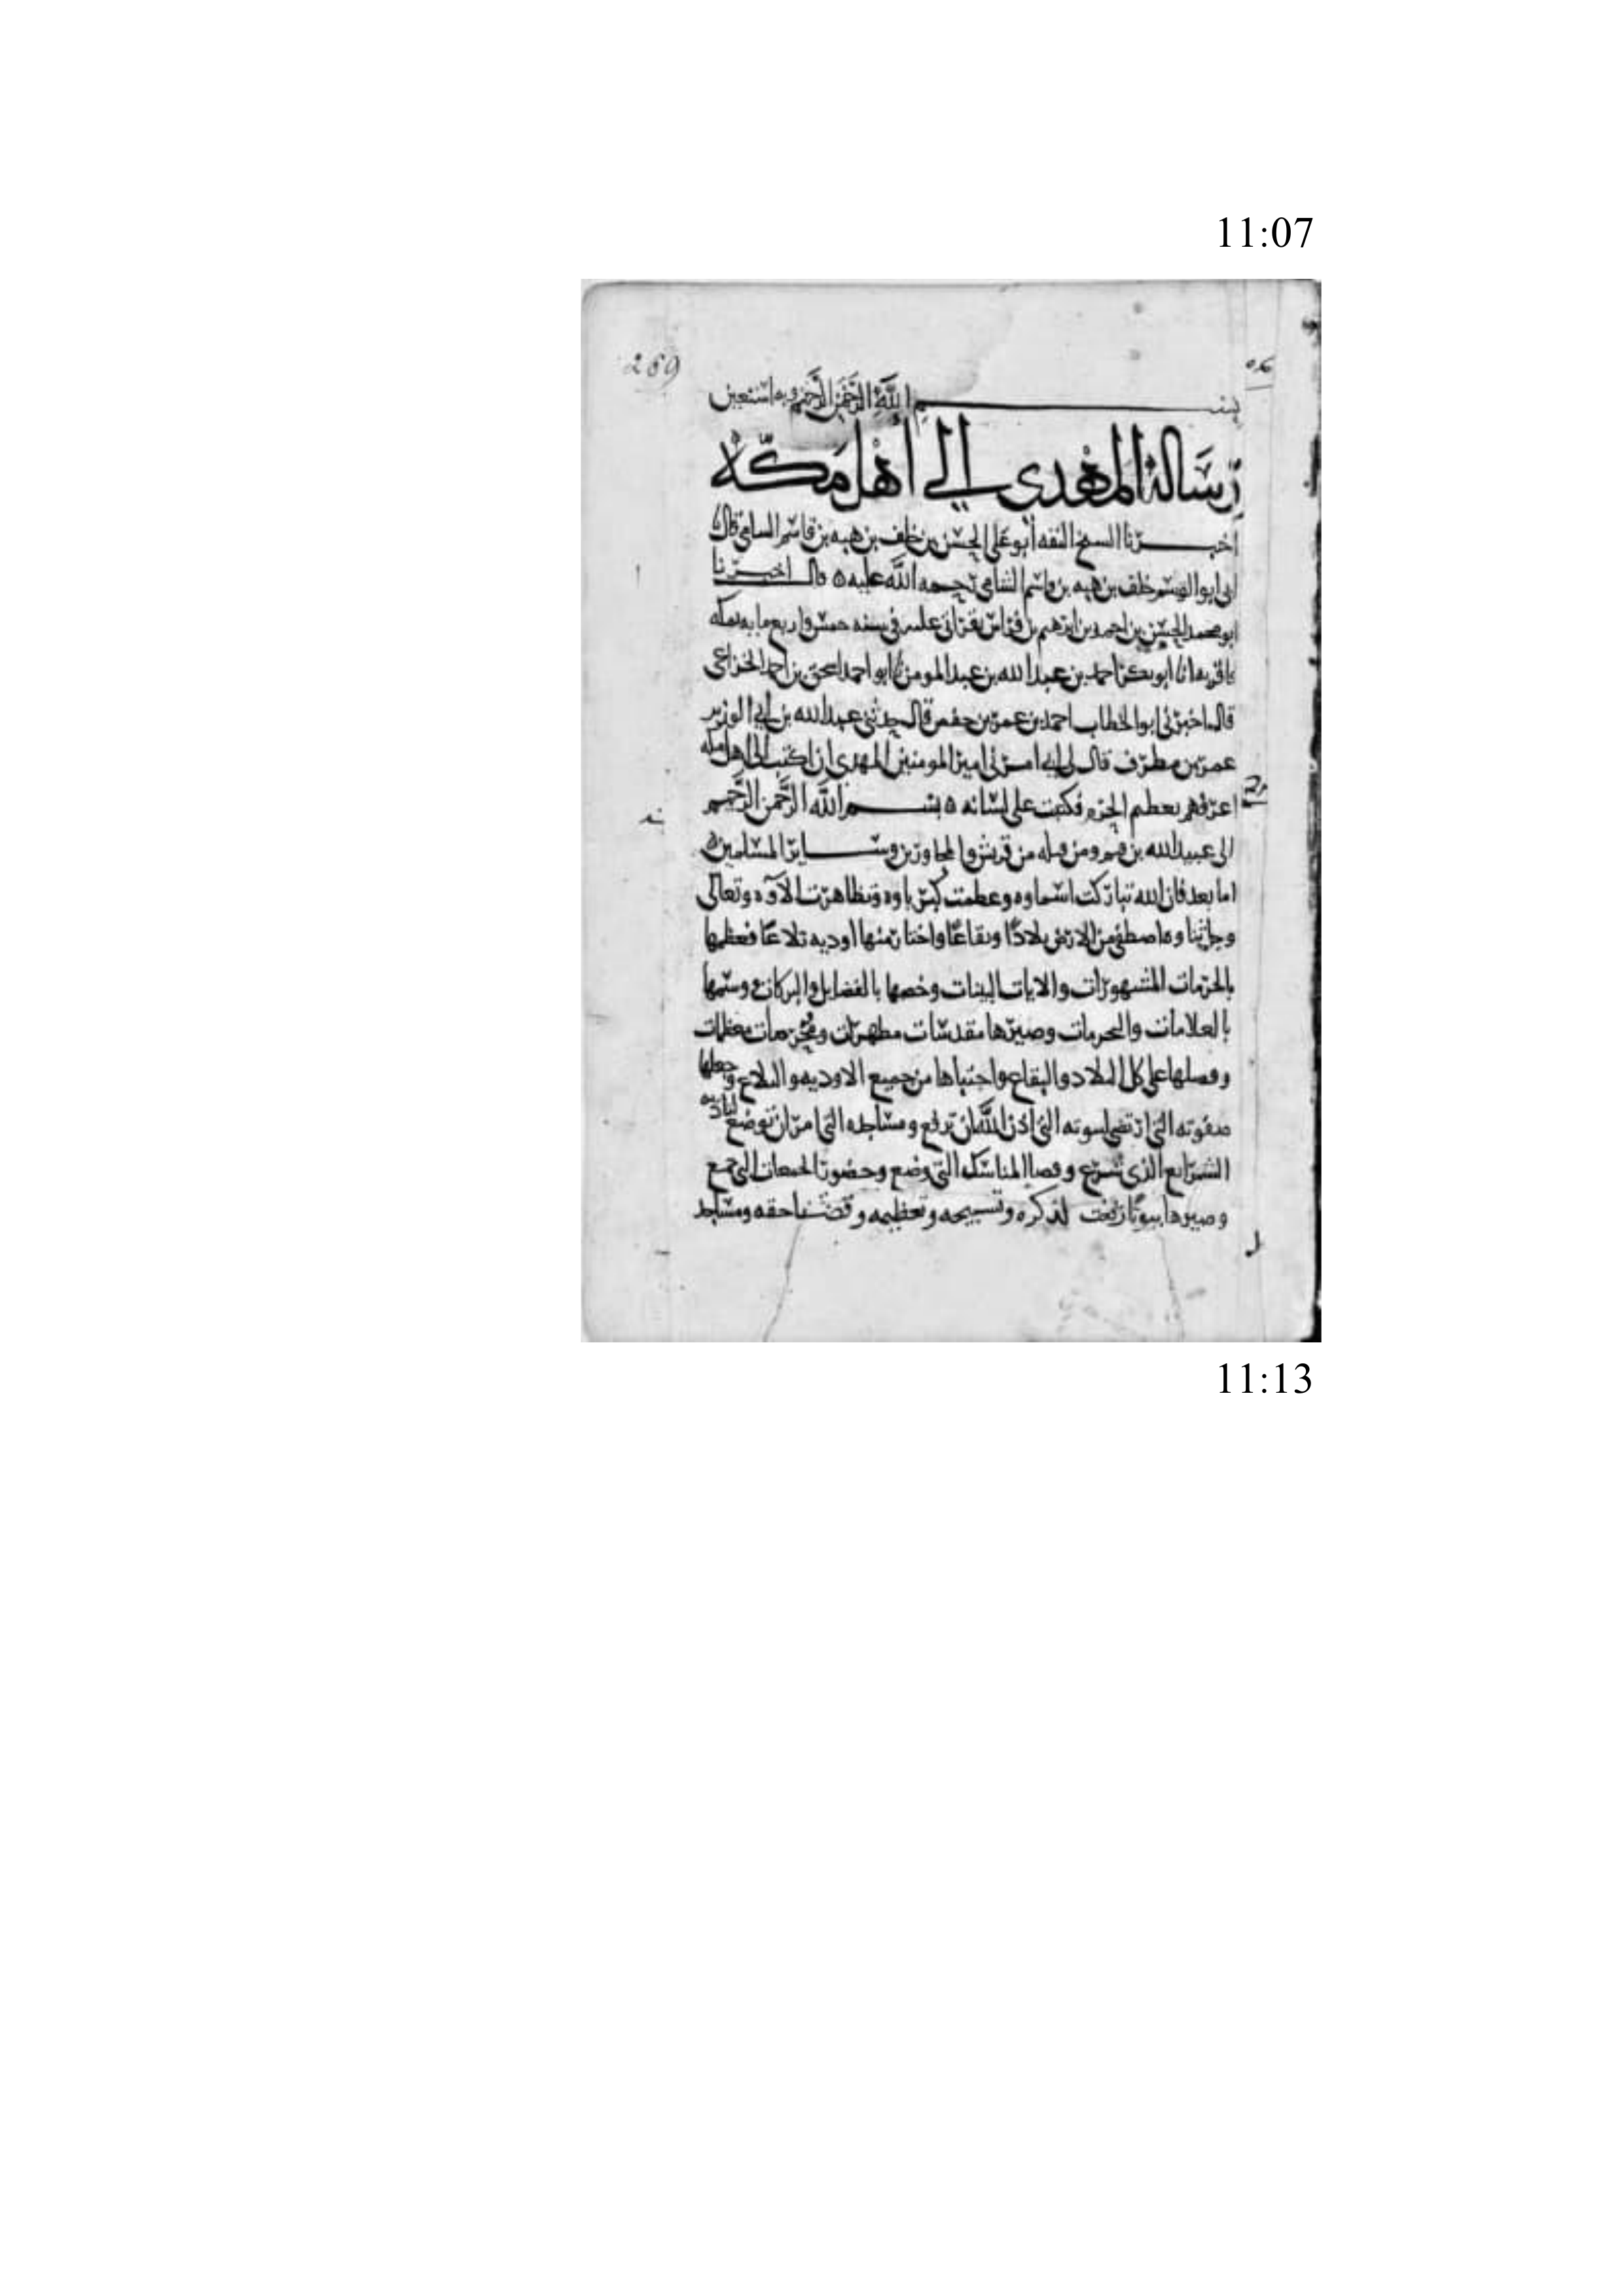 11:07
269
بسم الله الرحمن الرحيم وبه استعين
رسالة المهدي إلي أهل مكة
اخبرنا السيخ الثقه أبو علي الحسن بن خلف بن هبه بن قاسم السامي قال
ابي ابو القسم خلف بن هبه بن قاسم الشامي رحمه الله عليه ه قال اخبرنا
ابو محمد الحسن بن احمد بن ابرهيم بن فراس بقراتي عليه في سنه خمس واربع مايه بمكه
فاقر به انا ابو بكر احمد بن عبد الله بن عبد المومن ابو احمد اسحق بن احمد الخزاعي
قال اخبرني ابو الخطاب احمد بن عمر بن حفص قال حدثني عبد الله بن ابي الوزير
عمر بن مطرف قال لي ابي امرني امير المومنين المهدي ان اكتب الى اهل مكه
اعرفهم بعظم الحرم فكتبت على لسانه ه بسم الله الرحمن الرحيم
الى عبيد الله بن قثم ومن قبله من قريش والمجاورين وساير المسلمين ه
اما بعد فان الله تباركت اسماوه وعظمت كبرياوه وتظاهرت الآوه وتعالى
وجل ثناوه اصطفى من الارض بلادًا وبقاعًا واختار منها اوديه وتلاعًا فعظمها
بالحرمات المشهورات والايات البينات وخصها بالفضايل والبركات ووسمها
بالعلامات والمحرمات وصيرها مقدسات مطهرات ومحرمات معظمات
وفضلها على كل البلاد والبقاع واجتباها من جميع الاوديه والتلاع وجعلها
صفوته التي ارتضى لبيوته التي اذن الله ان ترفع ومساجده التي امر ان توضع لتاديه
الشرايع الذي شرع وقضا المناسك التي وضع وحضور الجمعات التي جمع
وصيرها بيوتًا رفعت لذكره وتسبيحه وتعظيمه وقضا حقه ومساجد
11:13